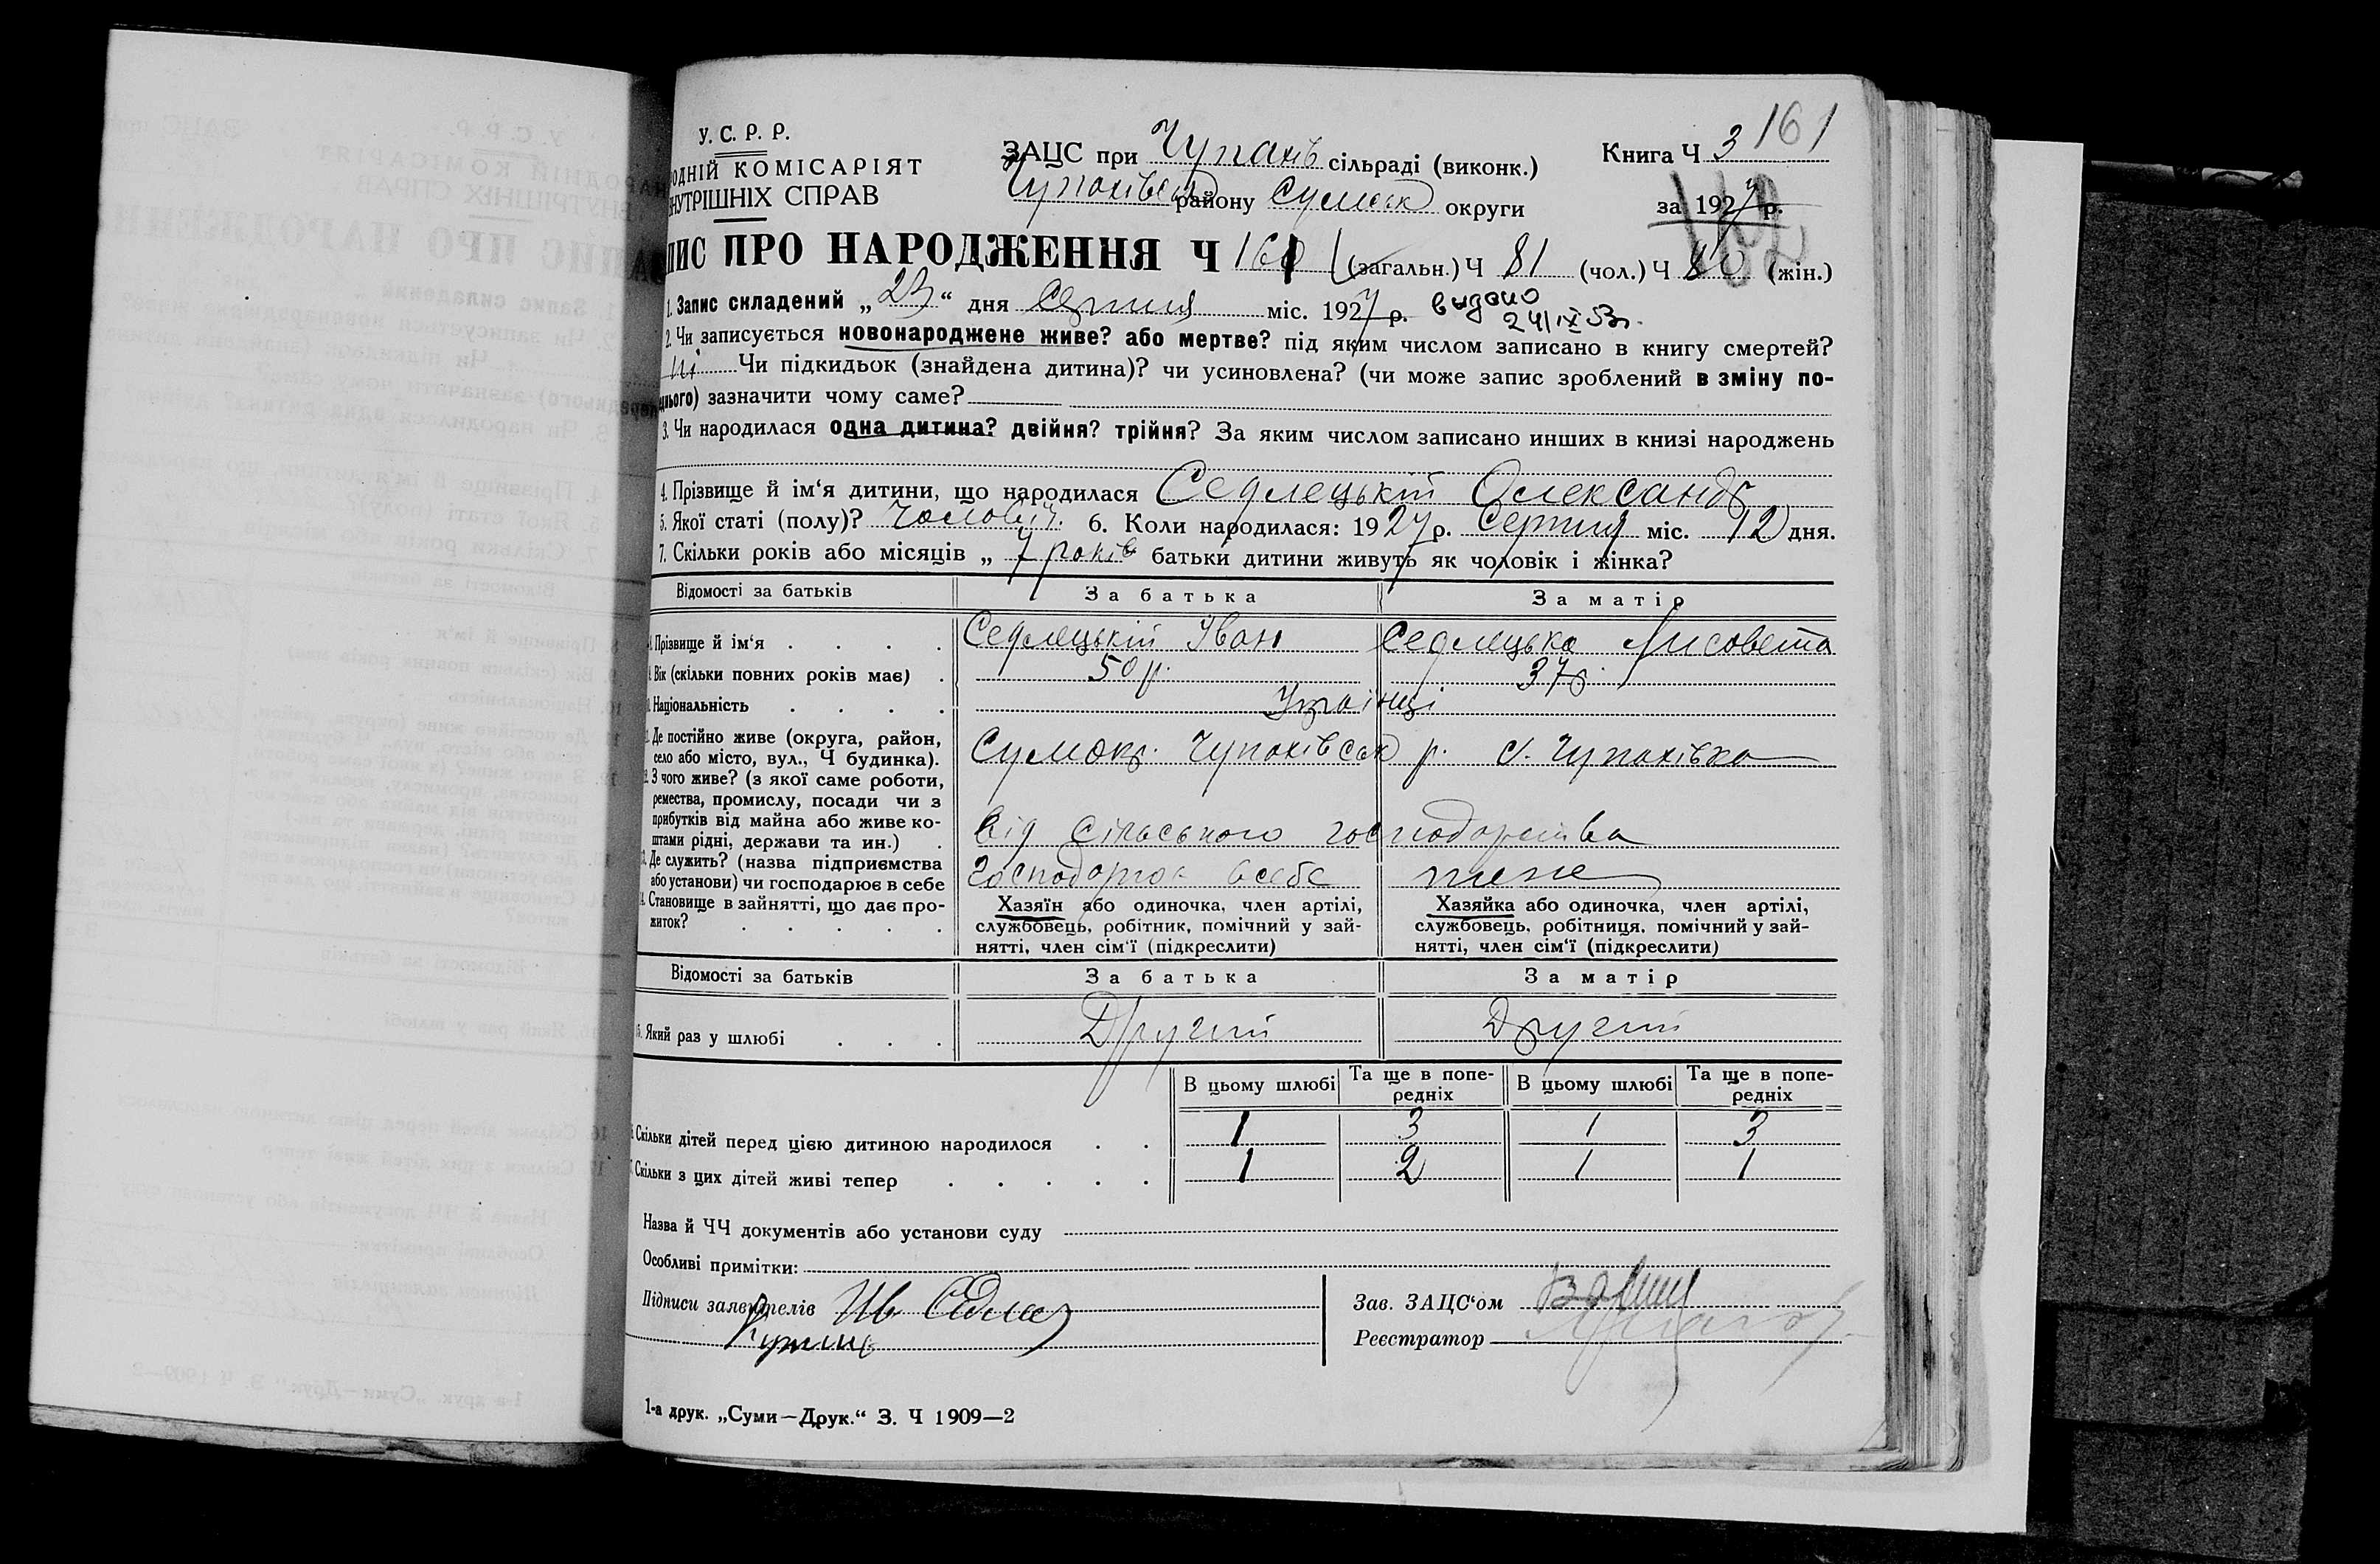 161
У. С. Р. Р.
ЗАЦС при Чупахів сільраді (виконк.) Книга Ч 3
ОДНІЙ КОМІСАРІЯТ
НУТРІШНІХ СПРАВ
Чупахівськ району Сумськ округи
за 1927 р.
ПИС ПРО НАРОДЖЕННЯ Ч 161 (загальн.) Ч 81 (чол.) Ч 80 (жін.)
1. Запис складений „23“ дня Серпня міс. 1927 р. видано
24/IX 53г.
2. Чи записується новонароджене живе? або мертве? під яким числом записано в книгу смертей?
ні Чи підкидьок (знайдена дитина)? чи усиновлена? (чи може запис зроблений в зміну по-
нього) зазначити чому саме?
3. Чи народилася одна дитина? двійня? трійня? За яким числом записано инших в книзі народжень
4. Прізвище й ім‘я дитини, що народилася Седлецькій Олександр
5. Якої статі (полу)? Чоловіч. 6. Коли народилася: 1927 р. Серпня міс. 12 дня.
7. Скільки років або місяців „ 7 років батьки дитини живуть як чоловік і жінка?
Відомості за батьків За батька За матір
Прізвище й ім‘я . . . . Седлецькій Іван Седлецька Лисовета
Вік (скільки повних років має) . 50 р. 37 р.
Національність . . . . Українці
Де постійно живе (округа, район,
село або місто, вул., Ч будинка). Сумокр. Чупахівськ р. с. Чупахівка
З чого живе? (з якої саме роботи,
ремества, промислу, посади чи з
прибутків від майна або живе ко-
штами рідні, держави та ин.) . від сільського господарства
Де служить? (назва підприємства
або установи) чи господарює в себе Господарює в себе теж
Становище в зайнятті, що дає про-
житок? . . . . .
Хазяїн або одиночка, член артілі,
службовець, робітник, помічний у зай-
нятті, член сім‘ї (підкреслити)
Хазяйка або одиночка, член артілі,
службовець, робітниця, помічний у зай-
нятті, член сім‘ї (підкреслити)
Відомості за батьків За батька За матір
Який раз у шлюбі . . . Другий Другий
В цьому шлюбі Та ще в попе-
редніх В цьому шлюбі Та ще в попе-
редніх
Скільки дітей перед цією дитиною народилося . . 1 3 1 3
Скільки з цих дітей живі тепер . . . . . 1 2 1 1
Назва й ЧЧ документів або установи суду
Особливі примітки:
Підписи заявителів Ив Седлец Зав. ЗАЦС‘ом
Реєстратор
1-а друк. „Суми—Друк.“ З. Ч 1909—2